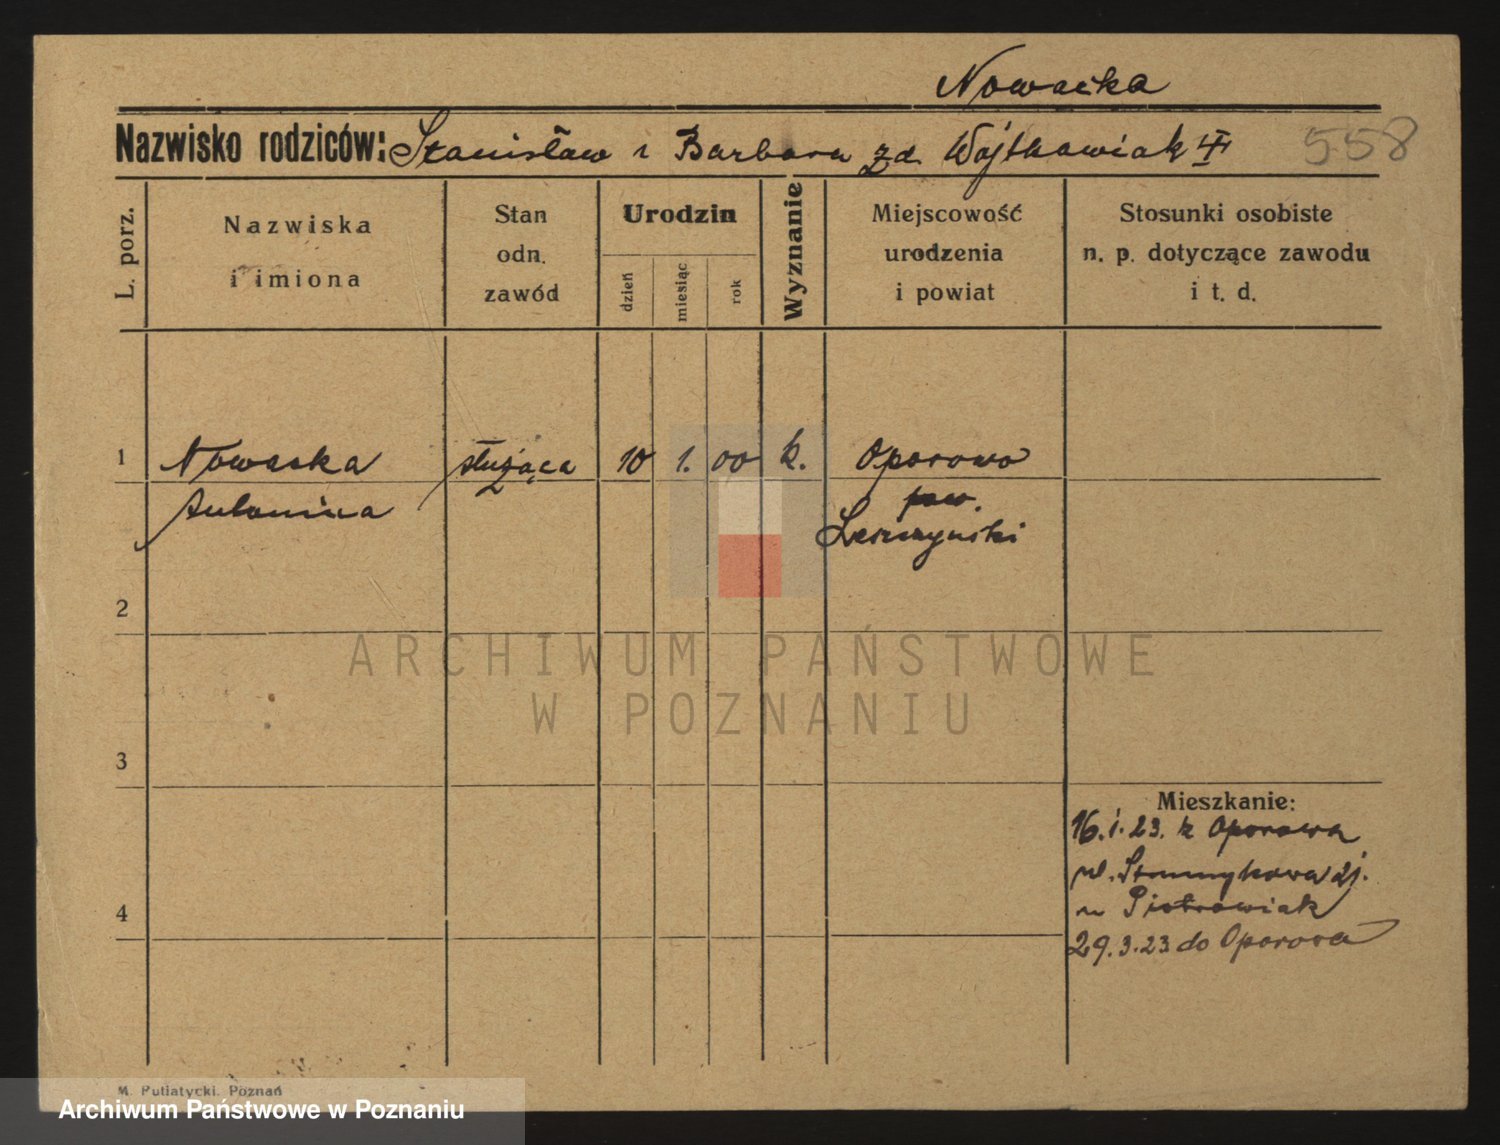 Nowacka
Nazwisko rodziców: Stanisław i Barbara zd. Wójtkowiak
558
L. porz.
Nazwiska
i imiona
Stan
odn.
zawód
Urodzin
dzień
miesiąc
rok
Wyznanie
Miejscowość
urodzenia
i powiat
Stosunki osobiste
n. p. dotyczące zawodu
i t. d.
1
Nowacka
Antonina
służąca
10
1.
00
k.
Oporowo
pow.
Leszczyński
2
3
4
Mieszkanie:
16.1.23. z Oporowa
ul.
u Piotrowiak
29.3.23 do Oporowa
ARCHIWUM PAŃSTWOWE
W POZNANIU
M. Putiatycki. Poznań
Archiwum Państwowe w Poznaniu